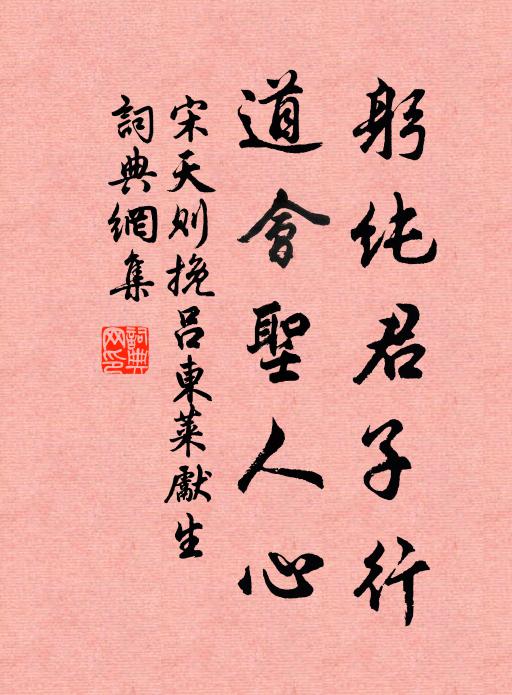 躬纯君子行
道會聖人心
宋天则挽吕東萊獻生
詞典網集
詞典网印